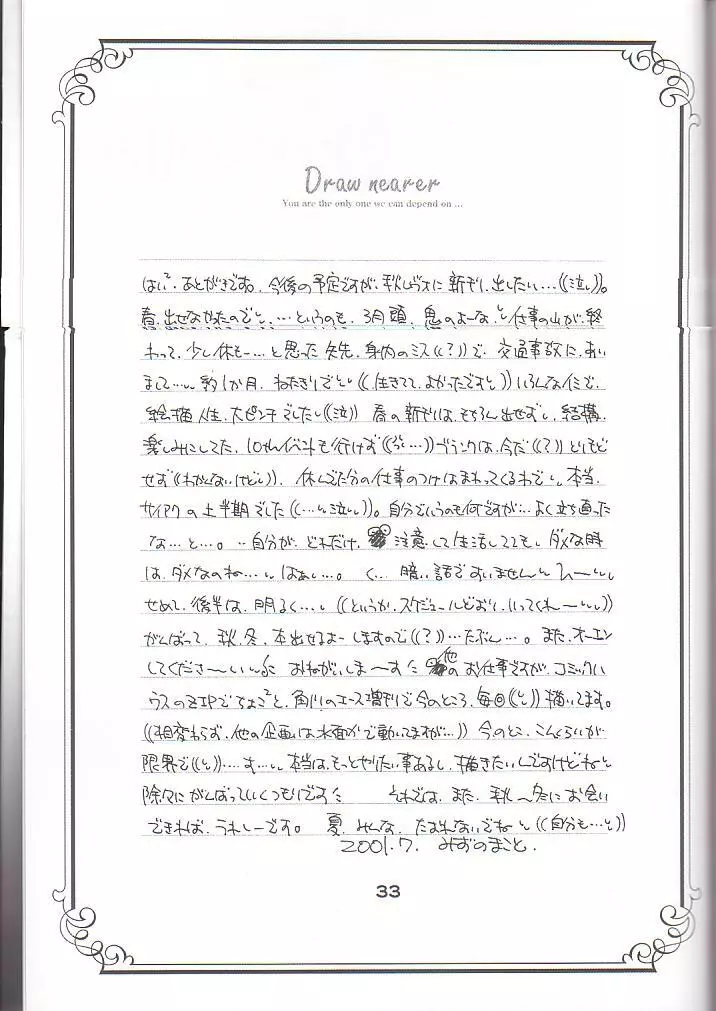 Draw nearer
You are the only one we can depend on ...
はい、あとがきです。今後の予定ですが、秋レヴォに新刊、出したい…((泣))。
春、出せなかったのでと、…というのも、3月頭、鬼のよーな、と仕事の山が、終
わって、少し休も…と思った矢先、身内のミス((?))で、交通事故に、あい
まして…、約1か月、ねたきりでと((生きてて、よかったですと))いろんなイミで、
絵描人生、大ピンチでした((泣)) 春の新刊は、もちろん出せずし、結構
楽しみにしてた、イベントも行けず ブランクは、今だ((?))とりもど
せず((わかんないけど))、休んでた分の仕事のつけはまわってくるわで、本当、
サイアクの上半期でした((…泣))。自分でいうのも何ですが…よく立ち直った
な…と…。…自分が、どれだけ、注意して生活してても、ダメな時
は、ダメなのね…、はぁ…。く…暗い話ですいません
せめて、後半は、明るく… ((というか、スケジュールどおり、いってくれー))
がんばって、秋、冬、本出せるよーしますので((?))…たぶん…。また、オーエン
してくださーい おねがいしまーす 他のお仕事ですが、コミックハ
ウスのZIPでちょこっと、角川のエース増刊で今のところ、毎回 描いてます。
((相変わらず、他の企画は水面かで動いてますが…)) 今のとこ、こんくらいが
限界で…す…、本当は、もっとやりたい事あるし、描きたいんですけどねと
除々にがんばっていくつもりです それでは、また、秋〜冬にお会い
できれば、うれしーです。 夏、みんな、たおれないでねと((自分も…と))
2001.7. みずのまこと.
33